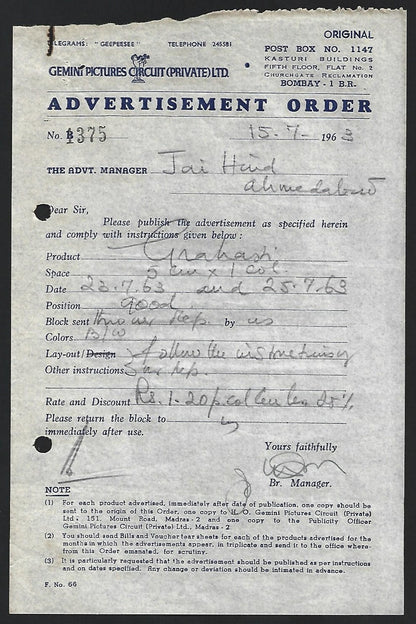 ORIGINAL
TELEGRAMS: "GEEPEESEE" TELEPHONE 245581
POST BOX NO. 1147
KASTURI BUILDINGS
FIFTH FLOOR, FLAT No. 2
CHURCHGATE RECLAMATION
BOMBAY - 1 B.R.
GEMINI PICTURES CIRCUIT (PRIVATE) LTD.
ADVERTISEMENT ORDER
No. 1375 15.7-1963
THE ADVT. MANAGER Jai Hind
Ahmedabad
Dear Sir,
Please publish the advertisement as specified herein
and comply with instructions given below:
Product Grahasti
Space 5 cm x 1 col.
Date 23.7.63 and 25.7.63
Position good
Block sent thro our Rep. by us
Colors B/W
Lay-out/Design follow the instructions of
Other instructions our rep.
Rate and Discount Rs. 1-20 p. col cm less 25%
Please return the block to us
immediately after use.
Yours faithfully
Br. Manager.
NOTE
(1) For each product advertised, immediately after date of publication, one copy should be
sent to the origin of this Order, one copy to H. O. Gemini Pictures Circuit (Private)
Ltd., 151, Mount Road, Madras - 2 and one copy to the Publicity Officer
Gemini Pictures Circuit (Private) Ltd., Madras - 2
(2) You should send Bills and Voucher tear sheets for each of the products advertised for the
months in which the advertisements appear, in triplicate and send it to the office where-
from this Order emanated, for scrutiny.
(3) It is particularly requested that the advertisement should be published as per instructions
and on dates specified. Any change or deviation should be intimated in advance.
F. No. 66